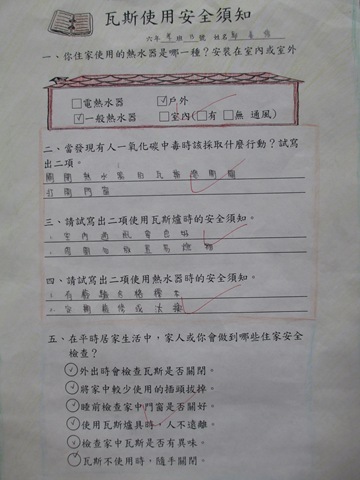 瓦斯使用安全須知
六年 班 號 姓名
一、你住家使用的熱水器是哪一種？安裝在室內或室外
□電熱水器 ☑戶外
☑一般熱水器 □室內(□有 □無 通風)
二、當發現有人一氧化碳中毒時該採取什麼行動？試寫
出二項。
打開門窗
三、請試寫出二項使用瓦斯爐時的安全須知。
1. 室內通風
2. 周圍
四、請試寫出二項使用熱水器時的安全須知。
1. 有
2. 定期
五、在平時居家生活中，家人或你會做到哪些住家安全
檢查？
外出時會檢查瓦斯是否關閉。
將家中較少使用的插頭拔掉。
睡前檢查家中門窗是否關好。
使用瓦斯爐具時，人不遠離。
檢查家中瓦斯是否有異味。
瓦斯不使用時，隨手關閉。